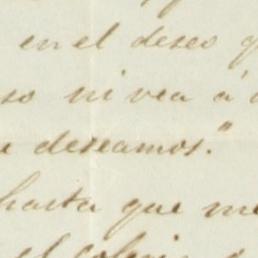 en el deseo
so ni vea á
deseamos."
hasta que me
el